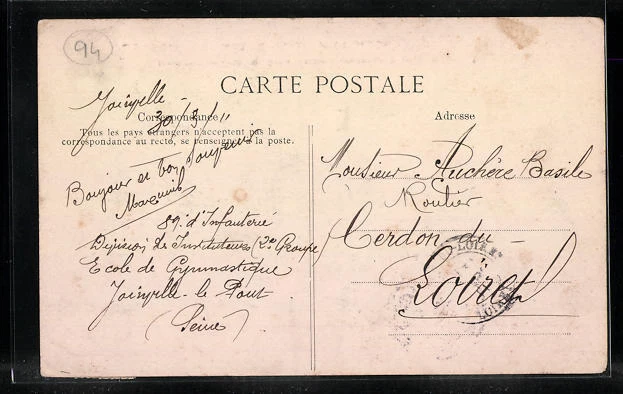 94
CARTE POSTALE
Joinville
30/3/11
Correspondance
Tous les pays étrangers n'acceptent pas la
correspondance au recto, se renseigner à la poste.
Bonjour et bon souvenir
89e d'Infanterie
Division de Instituteurs (2me Groupe)
Ecole de Gymnastique
Joinville-le Pont
(Seine)
Adresse
Monsieur Auchère Basile
Routier
Cerdon-du-
Loiret